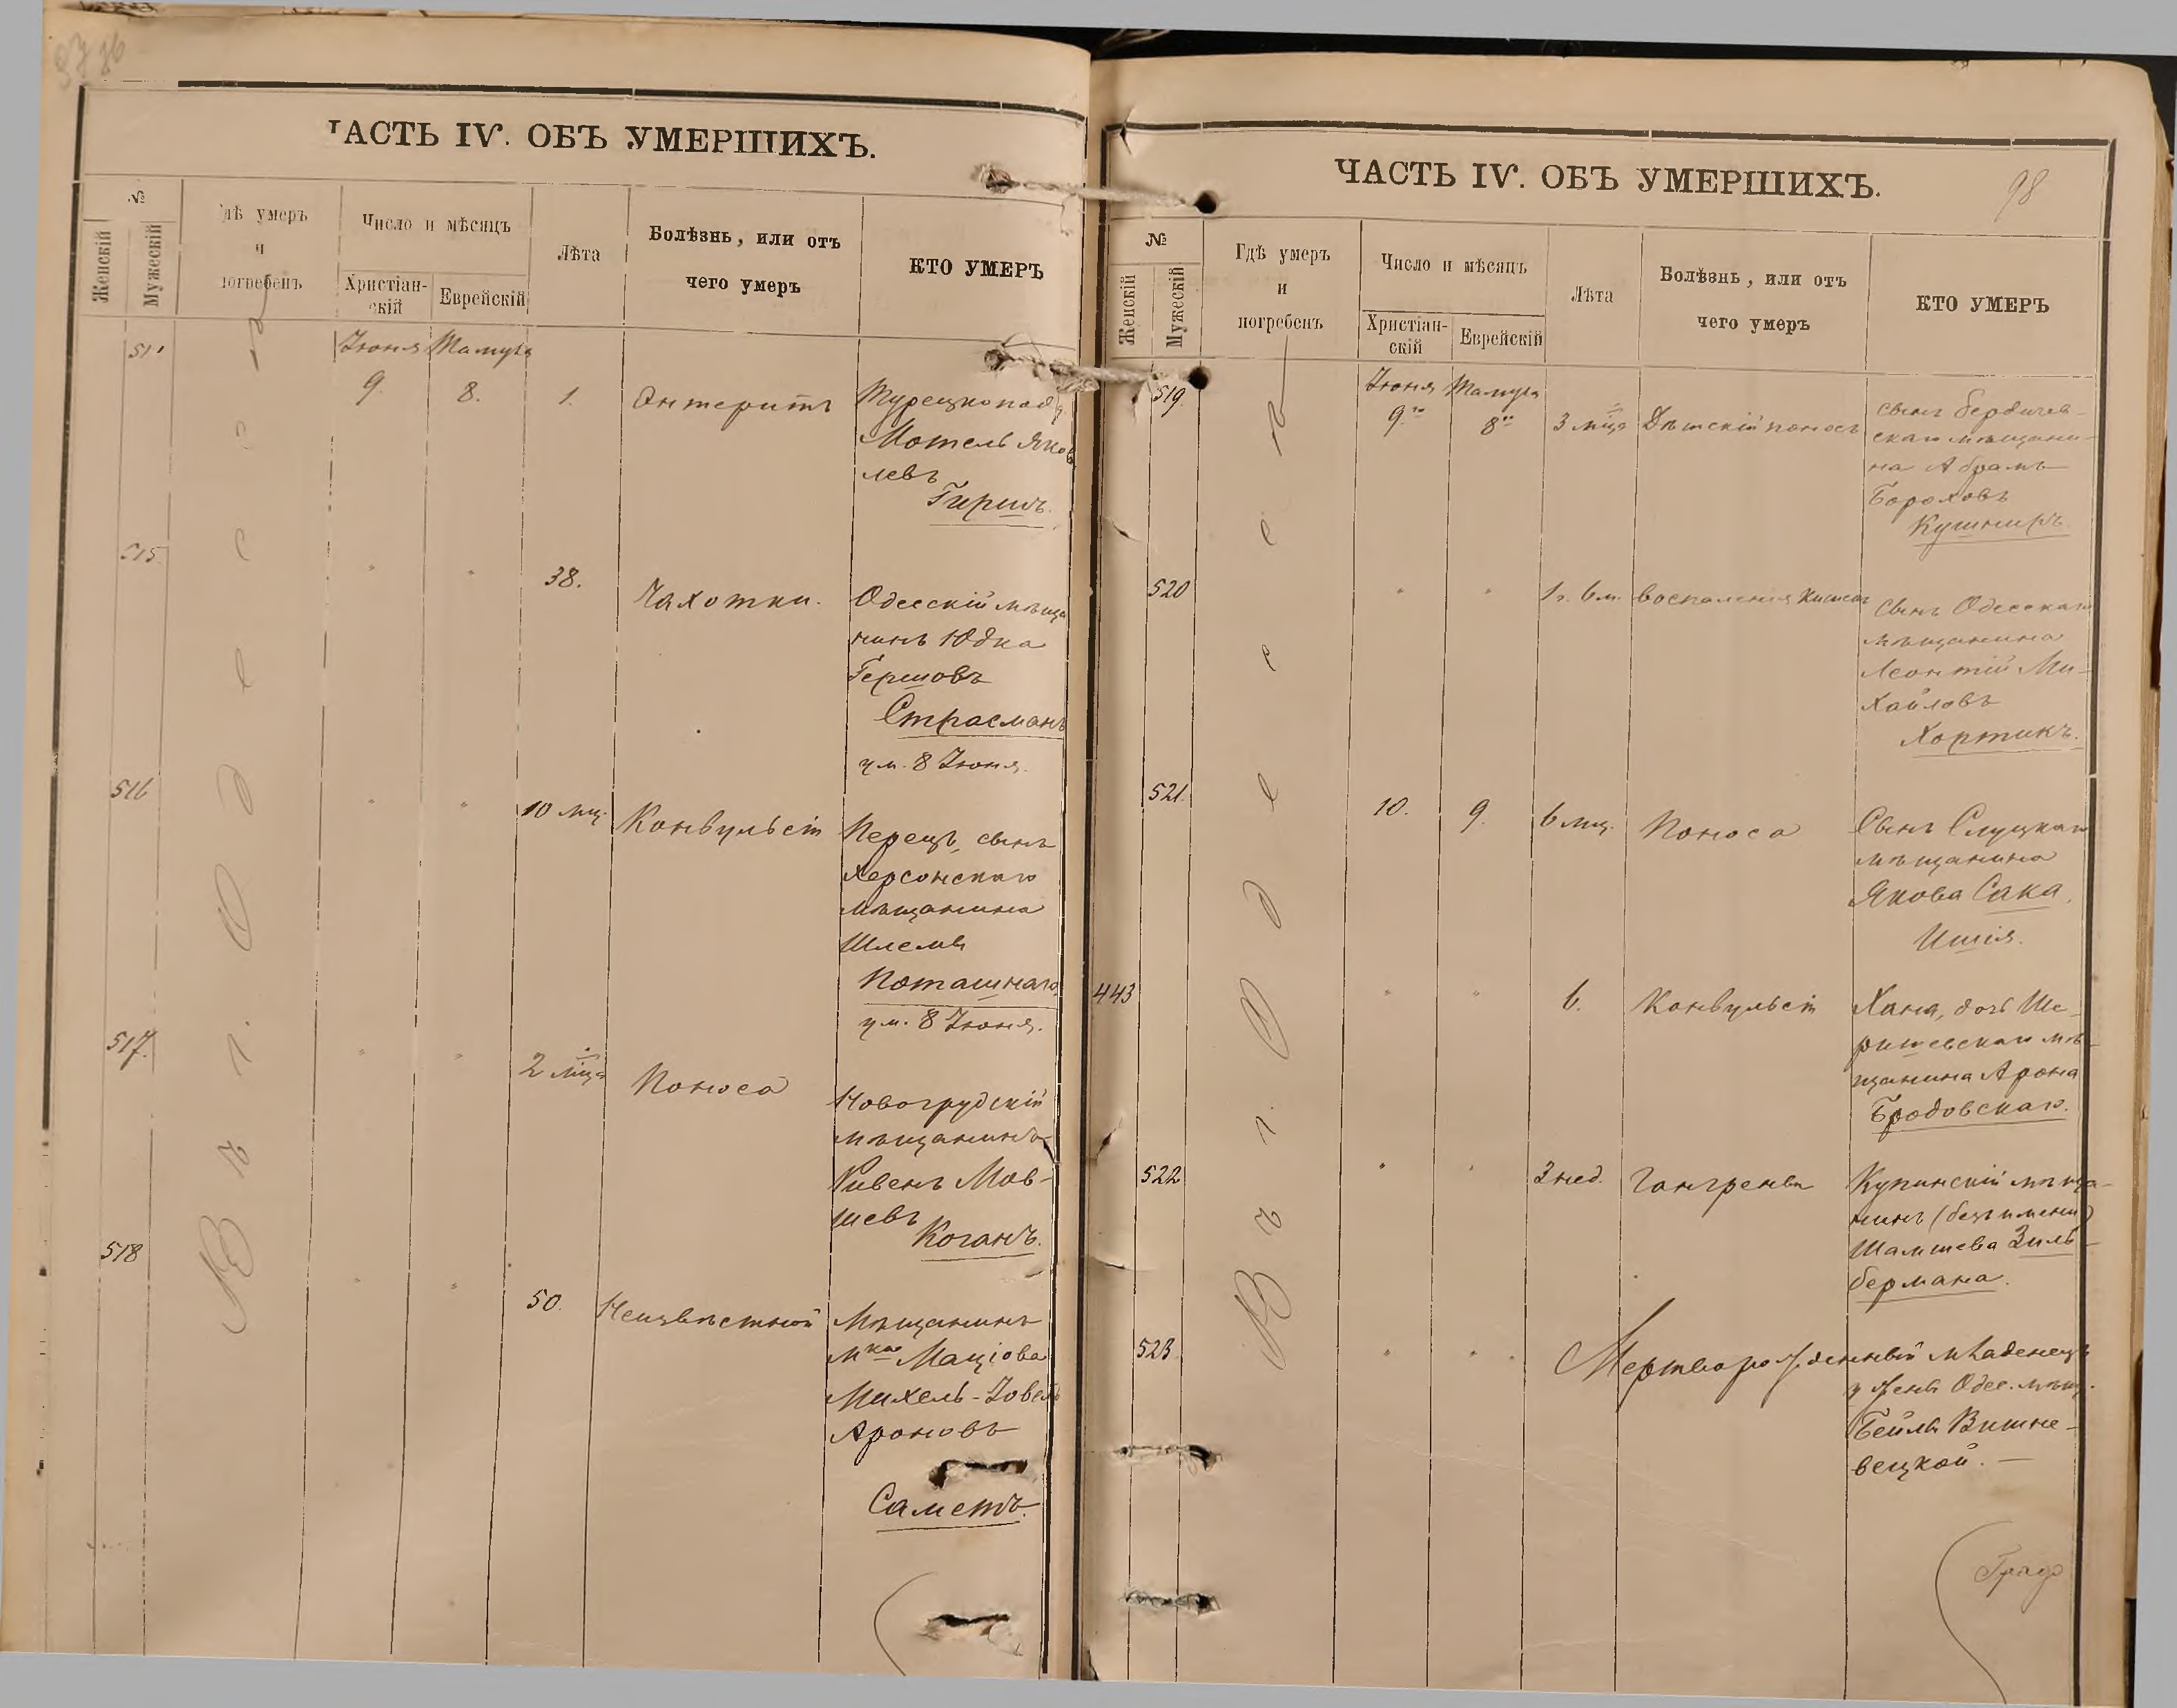 ЧАСТЬ IV. ОБЪ УМЕРШИХЪ.
№
Женскій
Мужескій
Гдѣ умеръ
и
погребенъ
Число и мѣсяцъ
Христіан-
скій
Еврейскій
Лѣта
Болѣзнь, или отъ
чего умеръ
КТО УМЕРЪ
Въ г. Одессѣ
Іюня Тамуза
9. 8. 1. Энтеритъ Турецкопод
Мотель Яков
левъ
Гиршъ.
515. " " 38. Чахотки. Одесскій мѣща
нинъ Юдка
Гершовъ
Страсманъ
ум. 8 Іюня.
516 " " 10 мц. Конвульсіи Перецъ, сынъ
Херсонскаго
мѣщанина
Шлемы
Поташнаго
ум. 8 Іюня.
517. " " 2 мца Поноса Новогрудскій
мѣщанинъ
Рувенъ Мов-
шевъ
Коганъ.
518 " " 50. Неизвѣстной Мѣщанинъ
мка Маціова
Михель-Іовель
Ароновъ
Саметъ.
ЧАСТЬ IV. ОБЪ УМЕРШИХЪ.
98
№
Женскій
Мужескій
Гдѣ умеръ
и
погребенъ
Число и мѣсяцъ
Христіан-
скій
Еврейскій
Лѣта
Болѣзнь, или отъ
чего умеръ
КТО УМЕРЪ
Въ г. Одессѣ
Іюня Тамуза
519. 9го 8го 3 мца Дѣтскій поносъ сынъ Бердичев-
скаго мѣщани-
на Абрамъ
Бороховъ
Кушниръ
520 " " 1г. 6м. Воспаленія кишекъ Сынъ Одесскаго
мѣщанина
Леонтій Ми-
хайловъ
Хортикъ.
521. 10. 9. 6 мц. Поноса Сынъ Слуцкаго
мѣщанина
Якова Сака,
Ишія.
443 " " 6. Конвульсіи Хана, дочь Ше-
ришевскаго мѣ-
щанина Арона
Бродовскаго.
522 " " 3 нед. Гангрены Купинскій мѣща-
нинъ (безъ имени)
Шамшева Зиль-
бермана.
523. " " Мертворожденный младенецъ
у жены Одес. мѣщ.
Бейлы Вишне-
вецкой. —